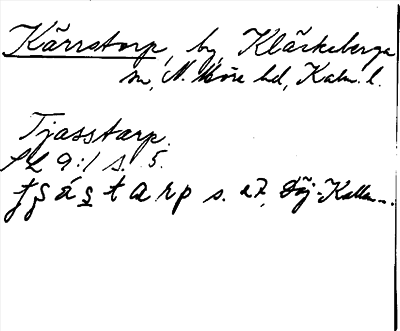 Kärrstorp, by, Kläckeberga
sn, N. Möre hd, Kalm. l.
Tjasstarp.
SL 9:1 s. 5.
s. 27, Döj-Kallen-.